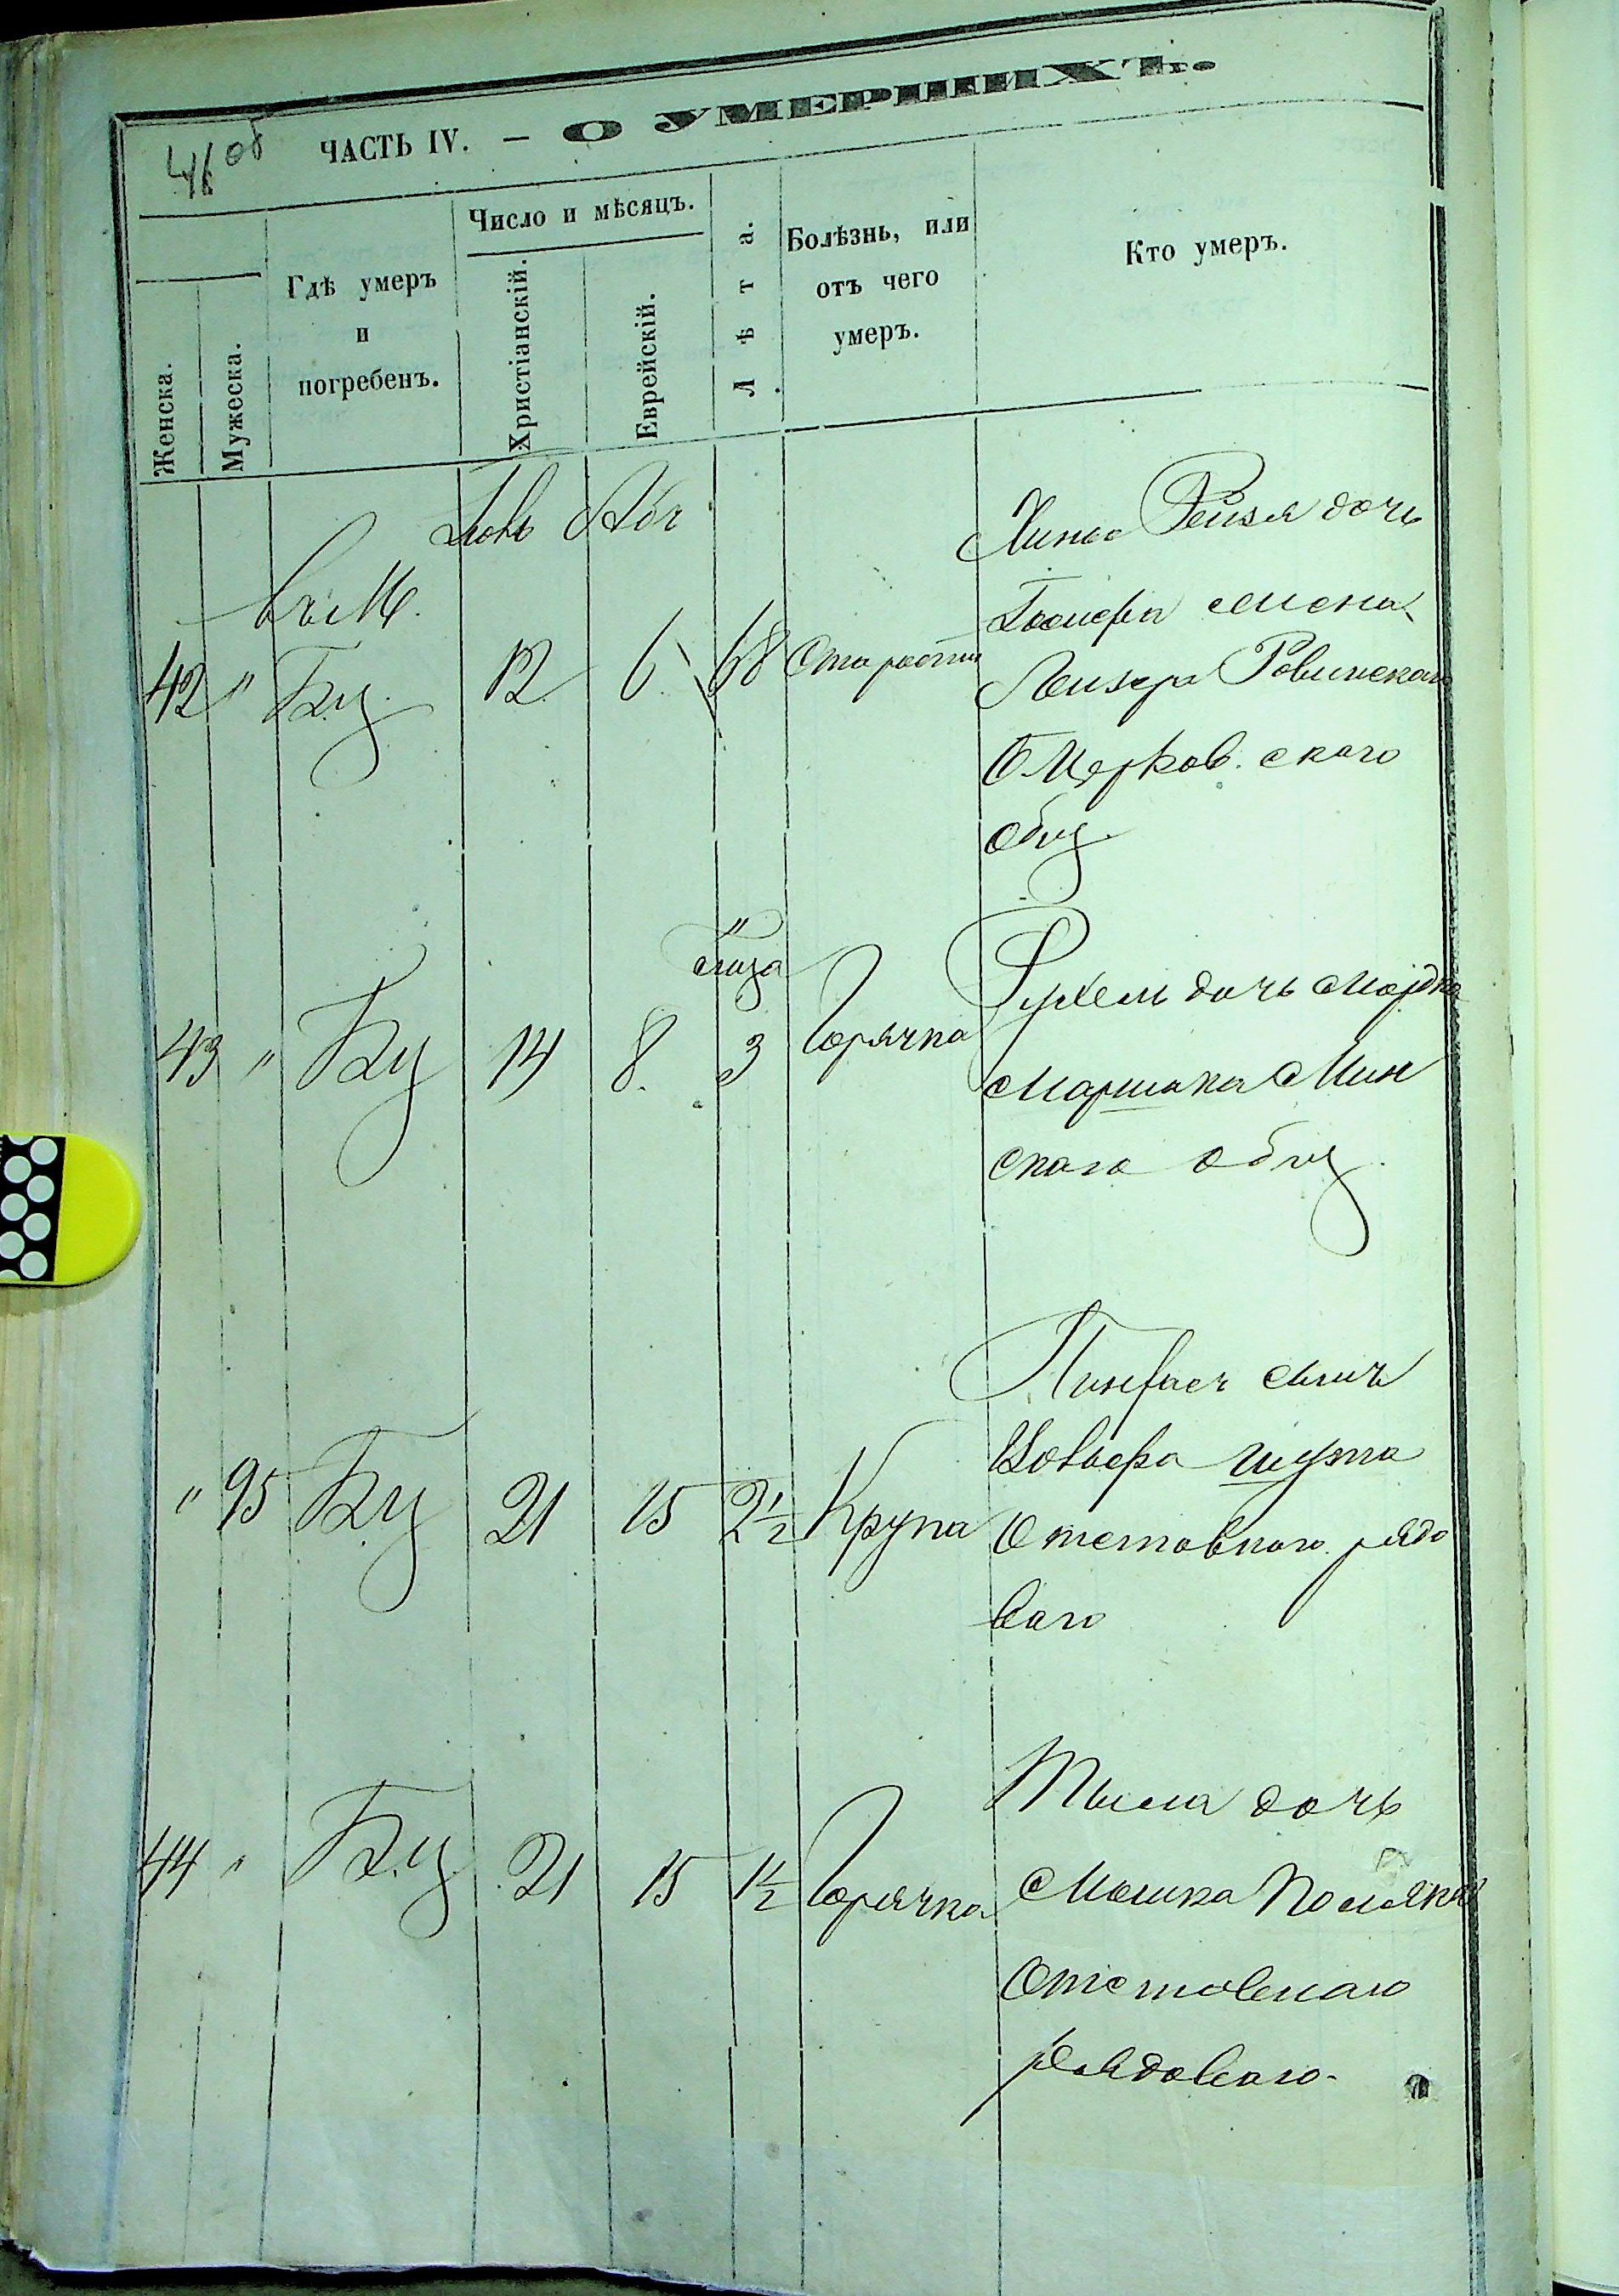 46 об ЧАСТЬ IV. — О УМЕРШИХЪ.
Женска.
Мужеска.
Гдѣ умеръ
и
погребенъ.
Число и мѣсяцъ.
Христіанскій.
Еврейскій.
Лѣта.
Болѣзнь, или
отъ чего
умеръ.
Кто умеръ.
въ М.
42 " Б.ц. 12 6 68 Старости
Рейзя дочь
жена
Лейзера Ровинскаго
Б Церков. скаго
общ.
43 " Бц 14 8. 3 Горячка
дочь Мордка
Маршака Мин
скаго общ.
" 95 Б.ц 21 15 2 1/2 Крупа
Пинхасъ сынъ
Шута
Отставнаго рядо
ваго
44 " Б.ц 21 15 1 1/2 Горячка
дочь
Мошка Полякъ
Отставнаго
рядоваго.